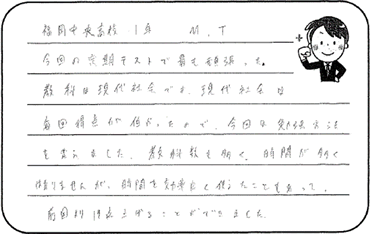 福岡中央高校 1年 M.T
今回の定期テストで最も頑張った
教科は現代社会です。現代社会は
毎回得点が低かったので、今回は勉強方法
を変えました。教科数も多く、時間が多く
ありませんが、時間を効率良く使えたこともあって、
前回より19点上げることができました。